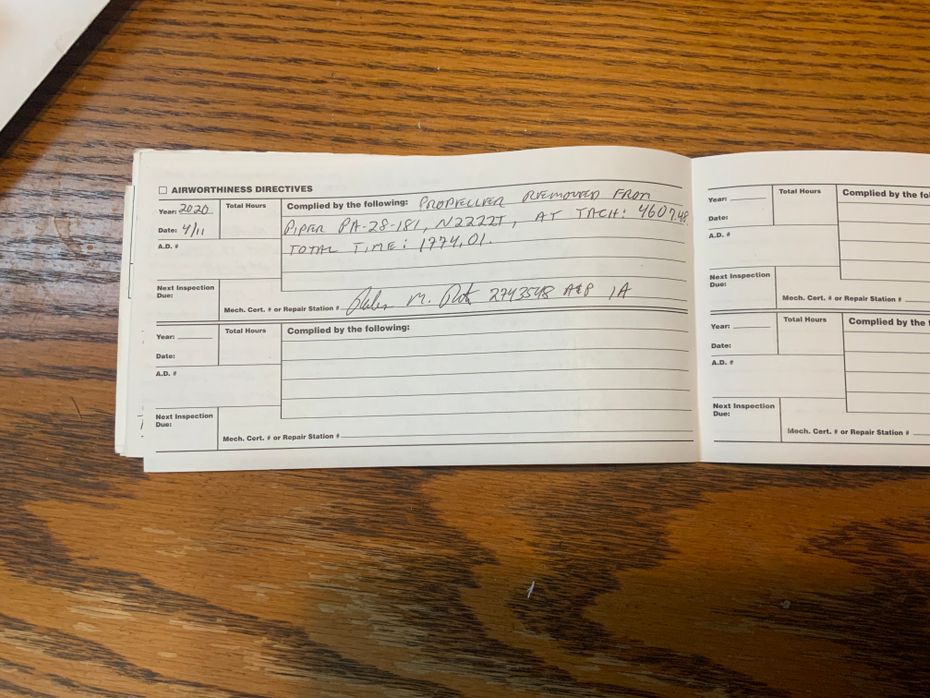 AIRWORTHINESS DIRECTIVES
Year: 2020
Total Hours
Complied by the following: PROPELLER REMOVED FROM
PIPER PA-28-181, N2222T, AT TACH: 4607.48
TOTAL TIME: 1774.01.
Date: 4/11
A.D. #
Next Inspection
Due:
Mech. Cert. # or Repair Station # M. 2743548 A&P IA
Year:
Total Hours
Complied by the following:
Date:
A.D. #
Next Inspection
Due:
Mech. Cert. # or Repair Station #
Year:
Total Hours
Complied by the fo
Date:
A.D. #
Next Inspection
Due:
Mech. Cert. # or Repair Station #
Year:
Total Hours
Complied by the
Date:
A.D. #
Next Inspection
Due:
Mech. Cert. # or Repair Station #